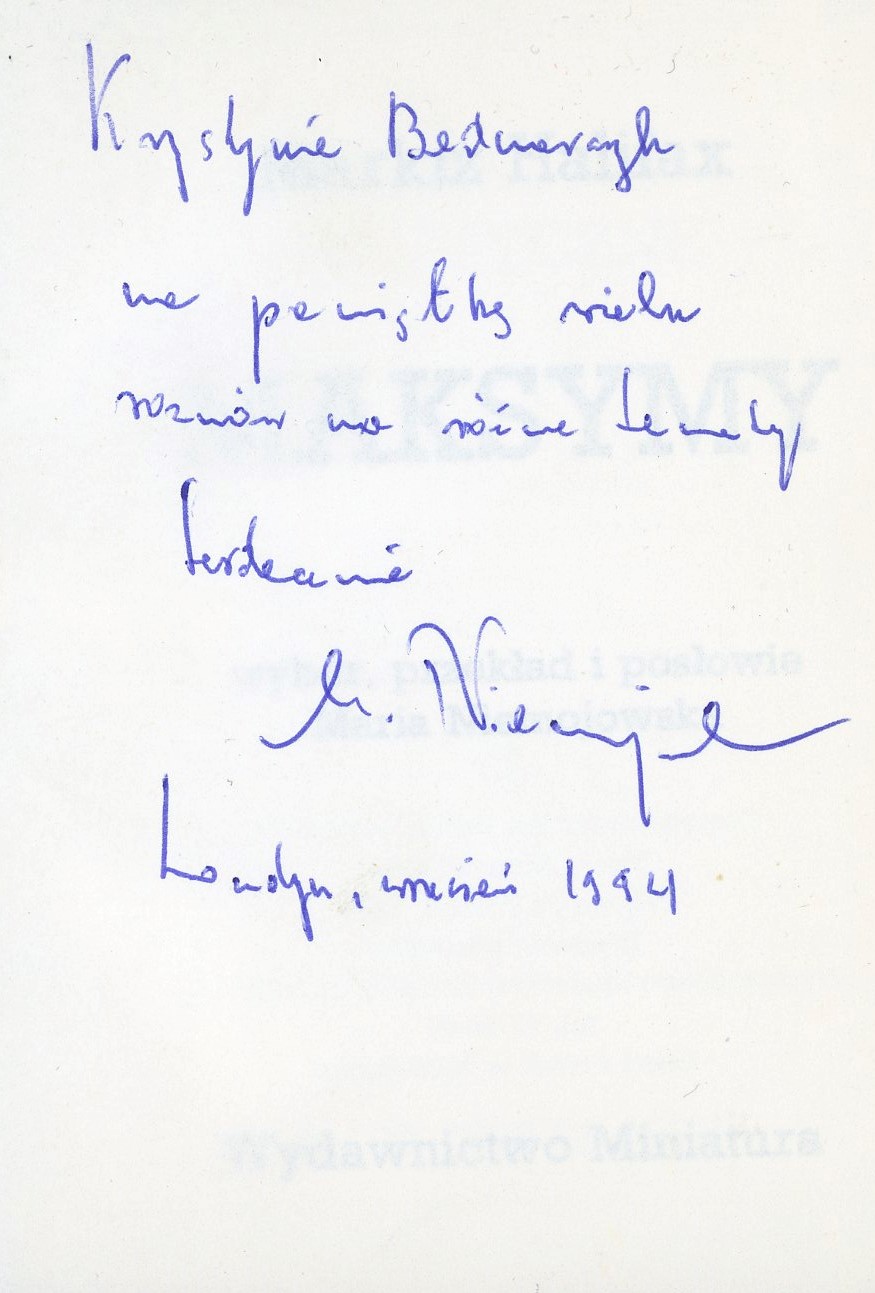 Krystynie Bednarczyk
na pamiątkę wielu
rozmów na różne tematy
serdecznie
M. Niemojowska
Londyn, wrzesień 1994
Markiz Halifax
MAKSYMY
wybór, przekład i posłowie
Maria Niemojowska
Wydawnictwo Miniatura